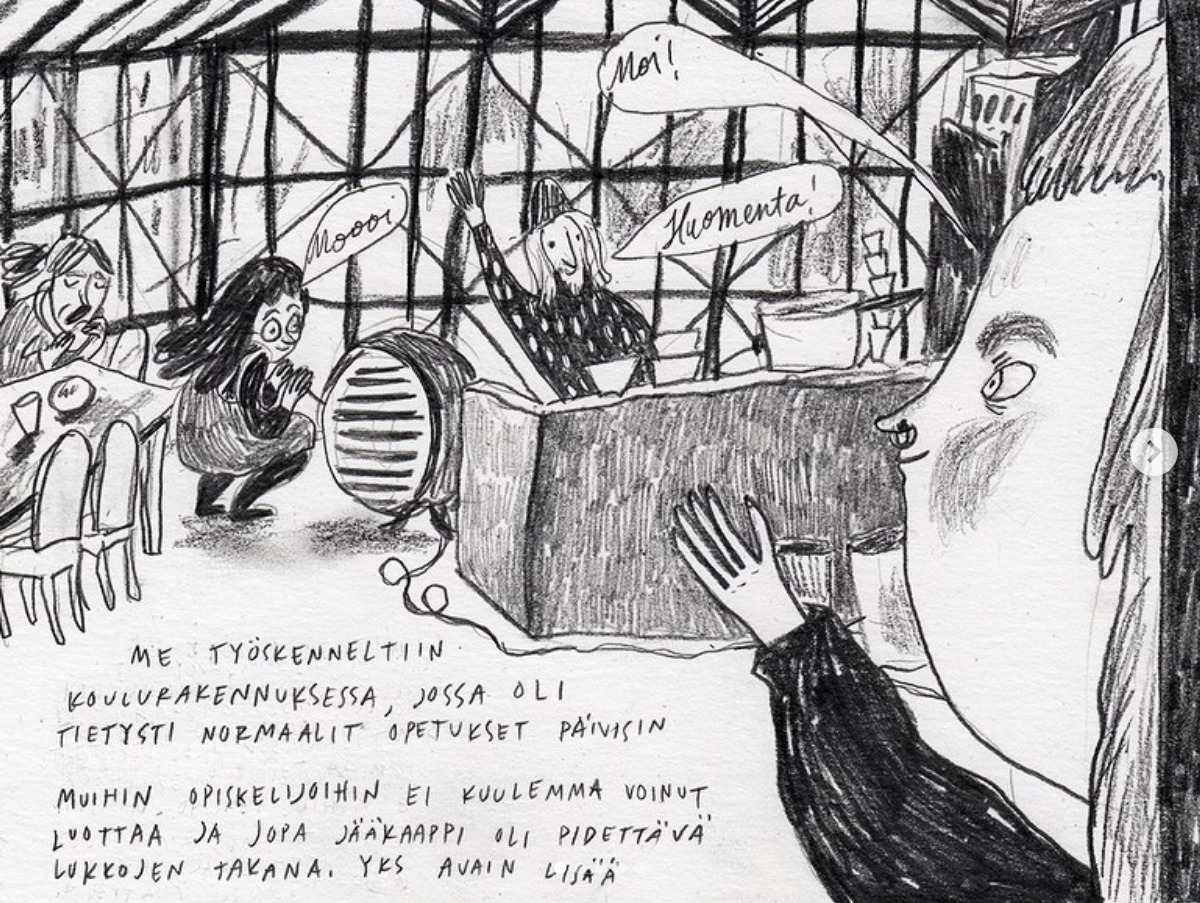 Moi!
Huomenta!
Moooi
ME TYÖSKENNELTIIN
KOULURAKENNUKSESSA, JOSSA OLI
TIETYSTI NORMAALIT OPETUKSET PÄIVISIN
MUIHIN OPISKELIJOIHIN EI KUULEMMA VOINUT
LUOTTAA JA JOPA JÄÄKAAPPI OLI PIDETTÄVÄ
LUKKOJEN TAKANA. YKS AVAIN LISÄÄ